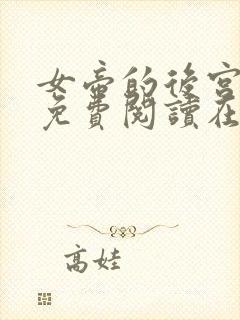 女帝的後宮
免費閱讀在
高娃